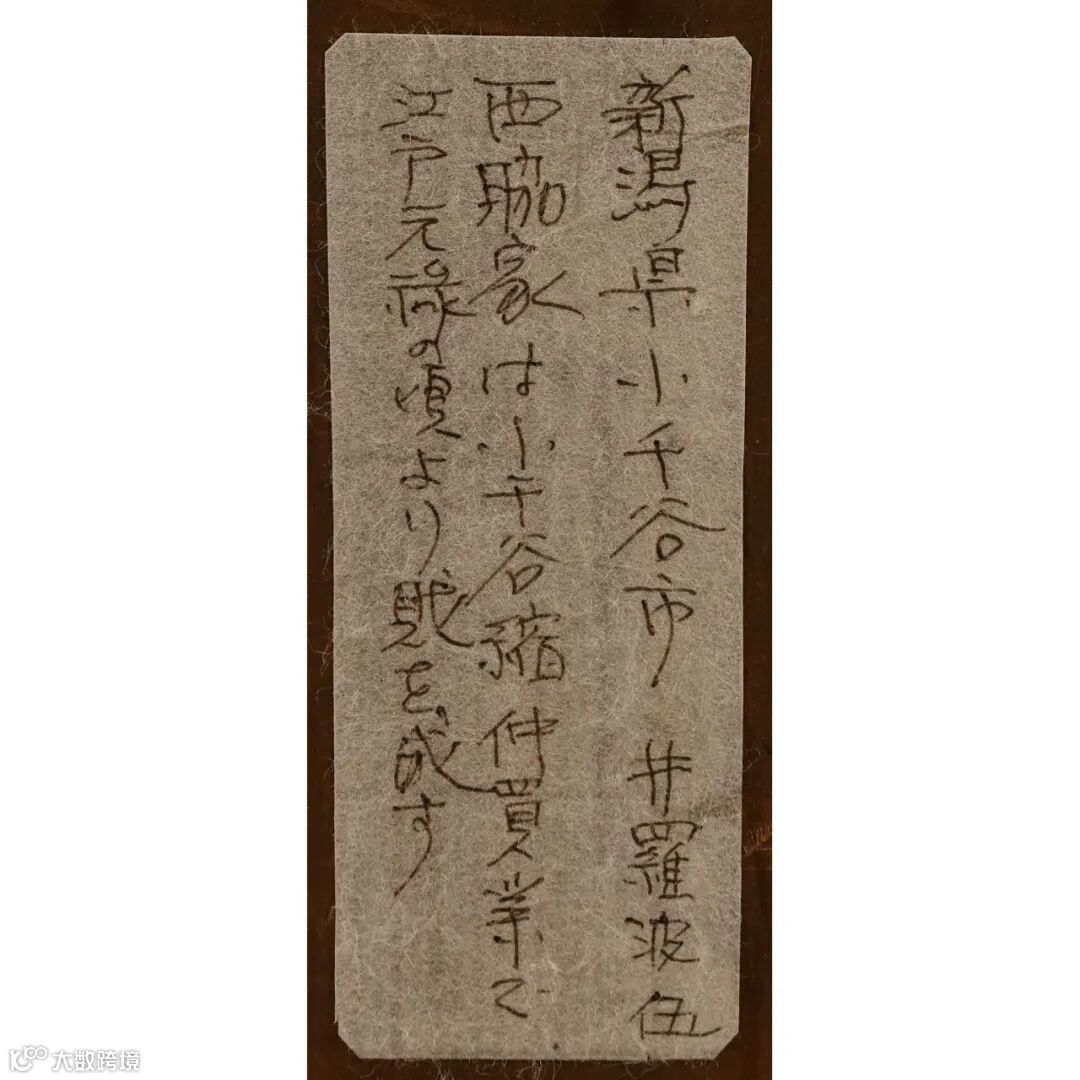 新潟県小千谷市 井羅波伍
西脇家は小千谷縮仲買業で
江戸元禄の頃より財を成す
大数跨境